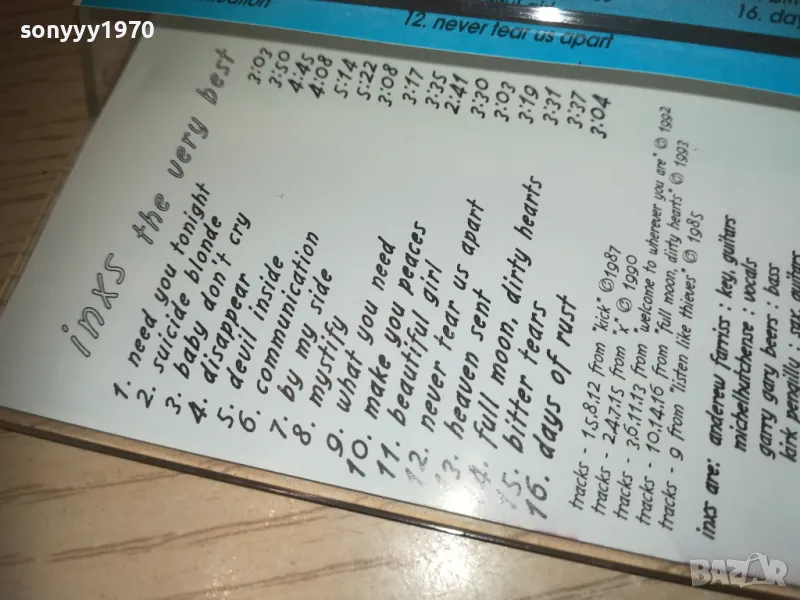 sonyyy1970
12. never tear us apart
16. day
inxs the very best
1. need you tonight 3:03
2. suicide blonde 3:50
3. baby don't cry 4:45
4. disappear 4:08
5. devil inside 5:14
6. communication 5:22
7. by my side 3:08
8. mystify 3:17
9. what you need 3:35
10. make you peaces 2:41
11. beautiful girl 3:30
12. never tear us apart 3:03
13. heaven sent 3:19
14. full moon, dirty hearts 3:31
15. bitter tears 3:37
16. days of rust 3:04
tracks - 1.5.8.12 from "kick" ©1987
tracks - 2.4.7.15 from "x" © 1990
tracks - 3.6.11.13 from "welcome to wherever you are" © 1992
tracks - 10.14.16 from "full moon, dirty hearts" © 1993
tracks - 9 from "listen like thieves" © 1985
inxs are: anderew farriss : key, guitars
michelhutchense : vocals
garry gary beers : bass
kirk pengilly : sax, guitars
BAZAR